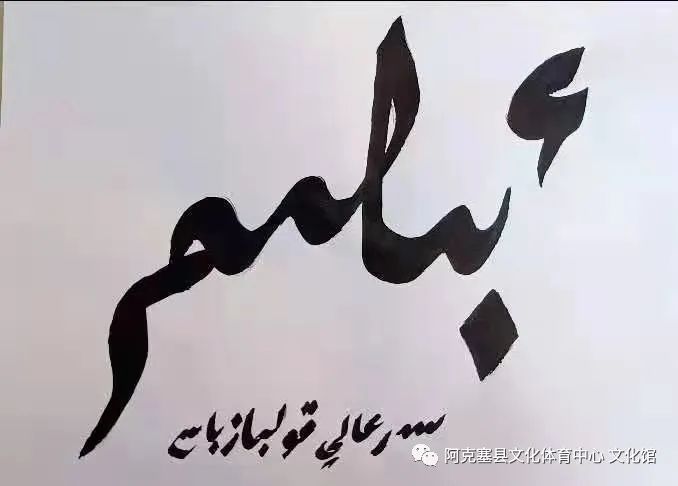 ءبىلىم
سەرعالي قولبازباي
阿克塞县文化体育中心 文化馆